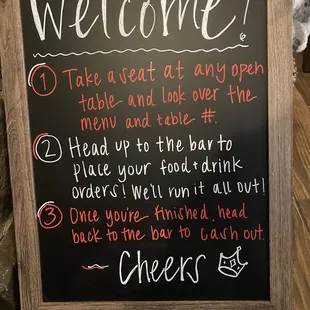 Welcome!
1 Take a seat at any open
table and look over the
menu and table #.
2 Head up to the bar to
place your food + drink
orders! We'll run it all out!
3 Once you're finished, head
back to the bar to cash out.
Cheers